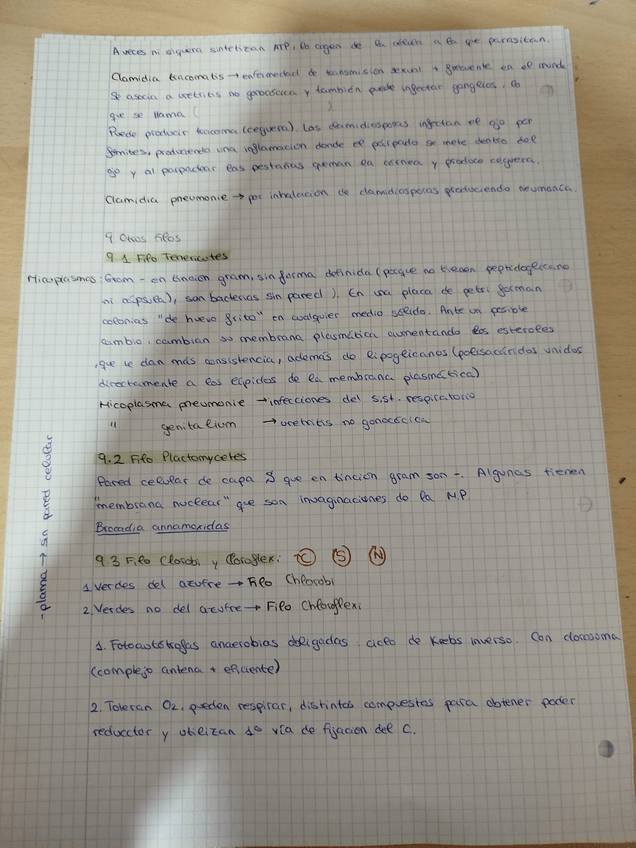 A veces ni siquiera sintetizan ATP, lo cogen de la célula a la que parasitan.
Clamidia tracomatis → enfermedad de transmisión sexual + frecuente en el mundo
Se asocia a uretritis no gonocócica y también puede infectar ganglios, lo
que se llama ( )
Puede producir tracoma (ceguera). Las clamidiosporas infectan el ojo por
fómites, produciendo una inflamación donde el párpado se mete dentro del
ojo y al parpadear las pestañas queman la córnea y produce ceguera.
Clamidia pneumonie → por inhalación de clamidiosporas produciendo neumonía.
9 Otros filos
9.1 Filo Tenericutes
Micoplasmas: Gram - en tinción gram, sin forma definida (porque no tienen peptidoglicano
ni cápsula), son bacterias sin pared). En una placa de petri forman
colonias "de huevo frito" en cualquier medio sólido. Ante un posible
cambio, cambian su membrana plasmática aumentando los esteroles
, que le dan más consistencia, además de lipoglicanos (polisacáridos unidos
directamente a los lípidos de la membrana plasmática)
Micoplasma pneumonie → infecciones del sist. respiratorio
" genitalium → uretritis no gonocócica
- plasma → sin pared celular
9.2 Filo Plactomycetes
Pared celular de capa S que en tinción gram son -. Algunas tienen
"membrana nuclear" que son invaginaciones de la M.P
Brocadia annamoxidas
9.3 Filo Clorobi y Cloroflexi: C S N
1. Verdes del azufre → Filo Chlorobi
2. Verdes no del azufre → Filo Chloroflexi
1. Fotoautótrofas anaerobias obligadas. ciclo de Krebs inverso. Con clorosoma
(complejo antena + eficiente)
2. Toleran O2, pueden respirar, distintos compuestos para obtener poder
reductor y utilizan vía de fijación del C.